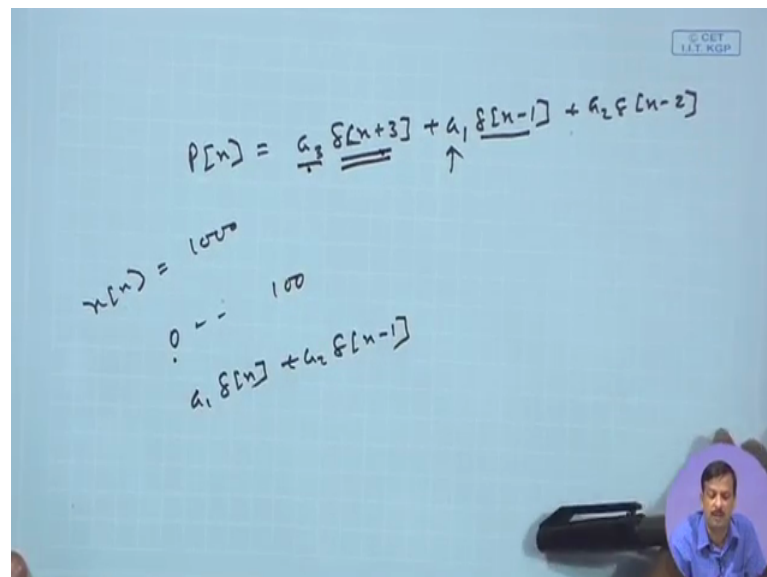 © CET
I.I.T. KGP
P[n] = a₃ δ[n+3] + a₁ δ[n-1] + a₂ δ[n-2]
x[n] = 1000
0 - - - 100
a₁ δ[n] + a₂ δ[n-1]